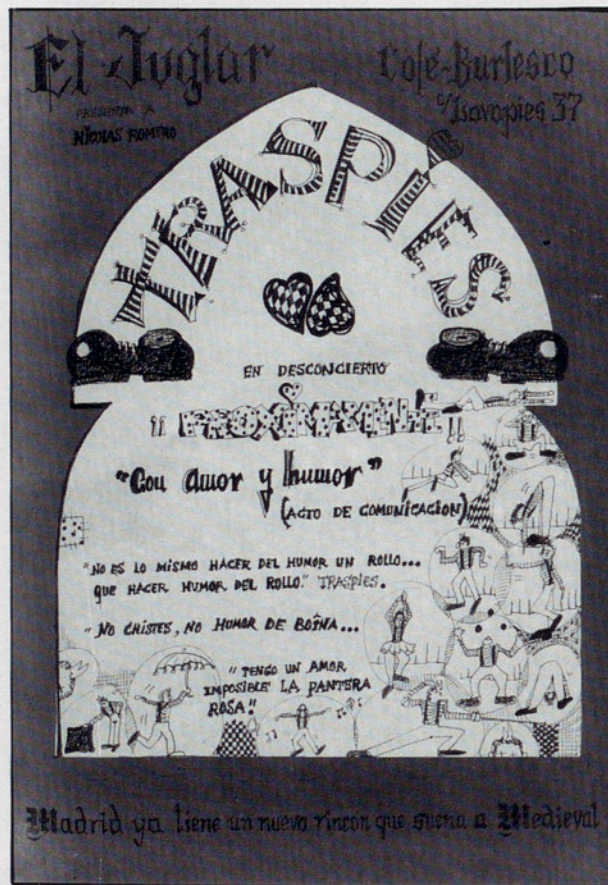 El Juglar
Café-Burlesco
PRESENTA A
c/Lavapies 37
NICOLAS ROMERO
TRASPIÉS
EN DESCONCIERTO
¡¡ PROXIMAMENTE !!
"Con amor y humor"
(ACTO DE COMUNICACION)
"NO ES LO MISMO HACER DEL HUMOR UN ROLLO...
QUE HACER HUMOR DEL ROLLO." TRASPIES.
"NO CHISTES, NO HUMOR DE BOINA...
"TENGO UN AMOR
IMPOSIBLE LA PANTERA
ROSA"
Madrid ya tiene un nuevo rincon que suena a Medieval